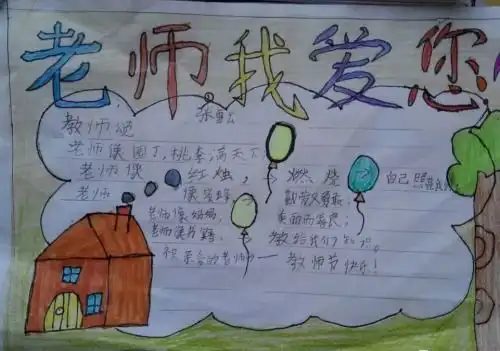 老师我爱您
教师颂
老师像园丁,桃李满天下
老师像红烛,燃烧自己照亮
老师像蜜蜂,
老师像妈妈,美丽而善良;
老师像书籍,教给我们知识。
祝亲爱的老师——教师节快乐!